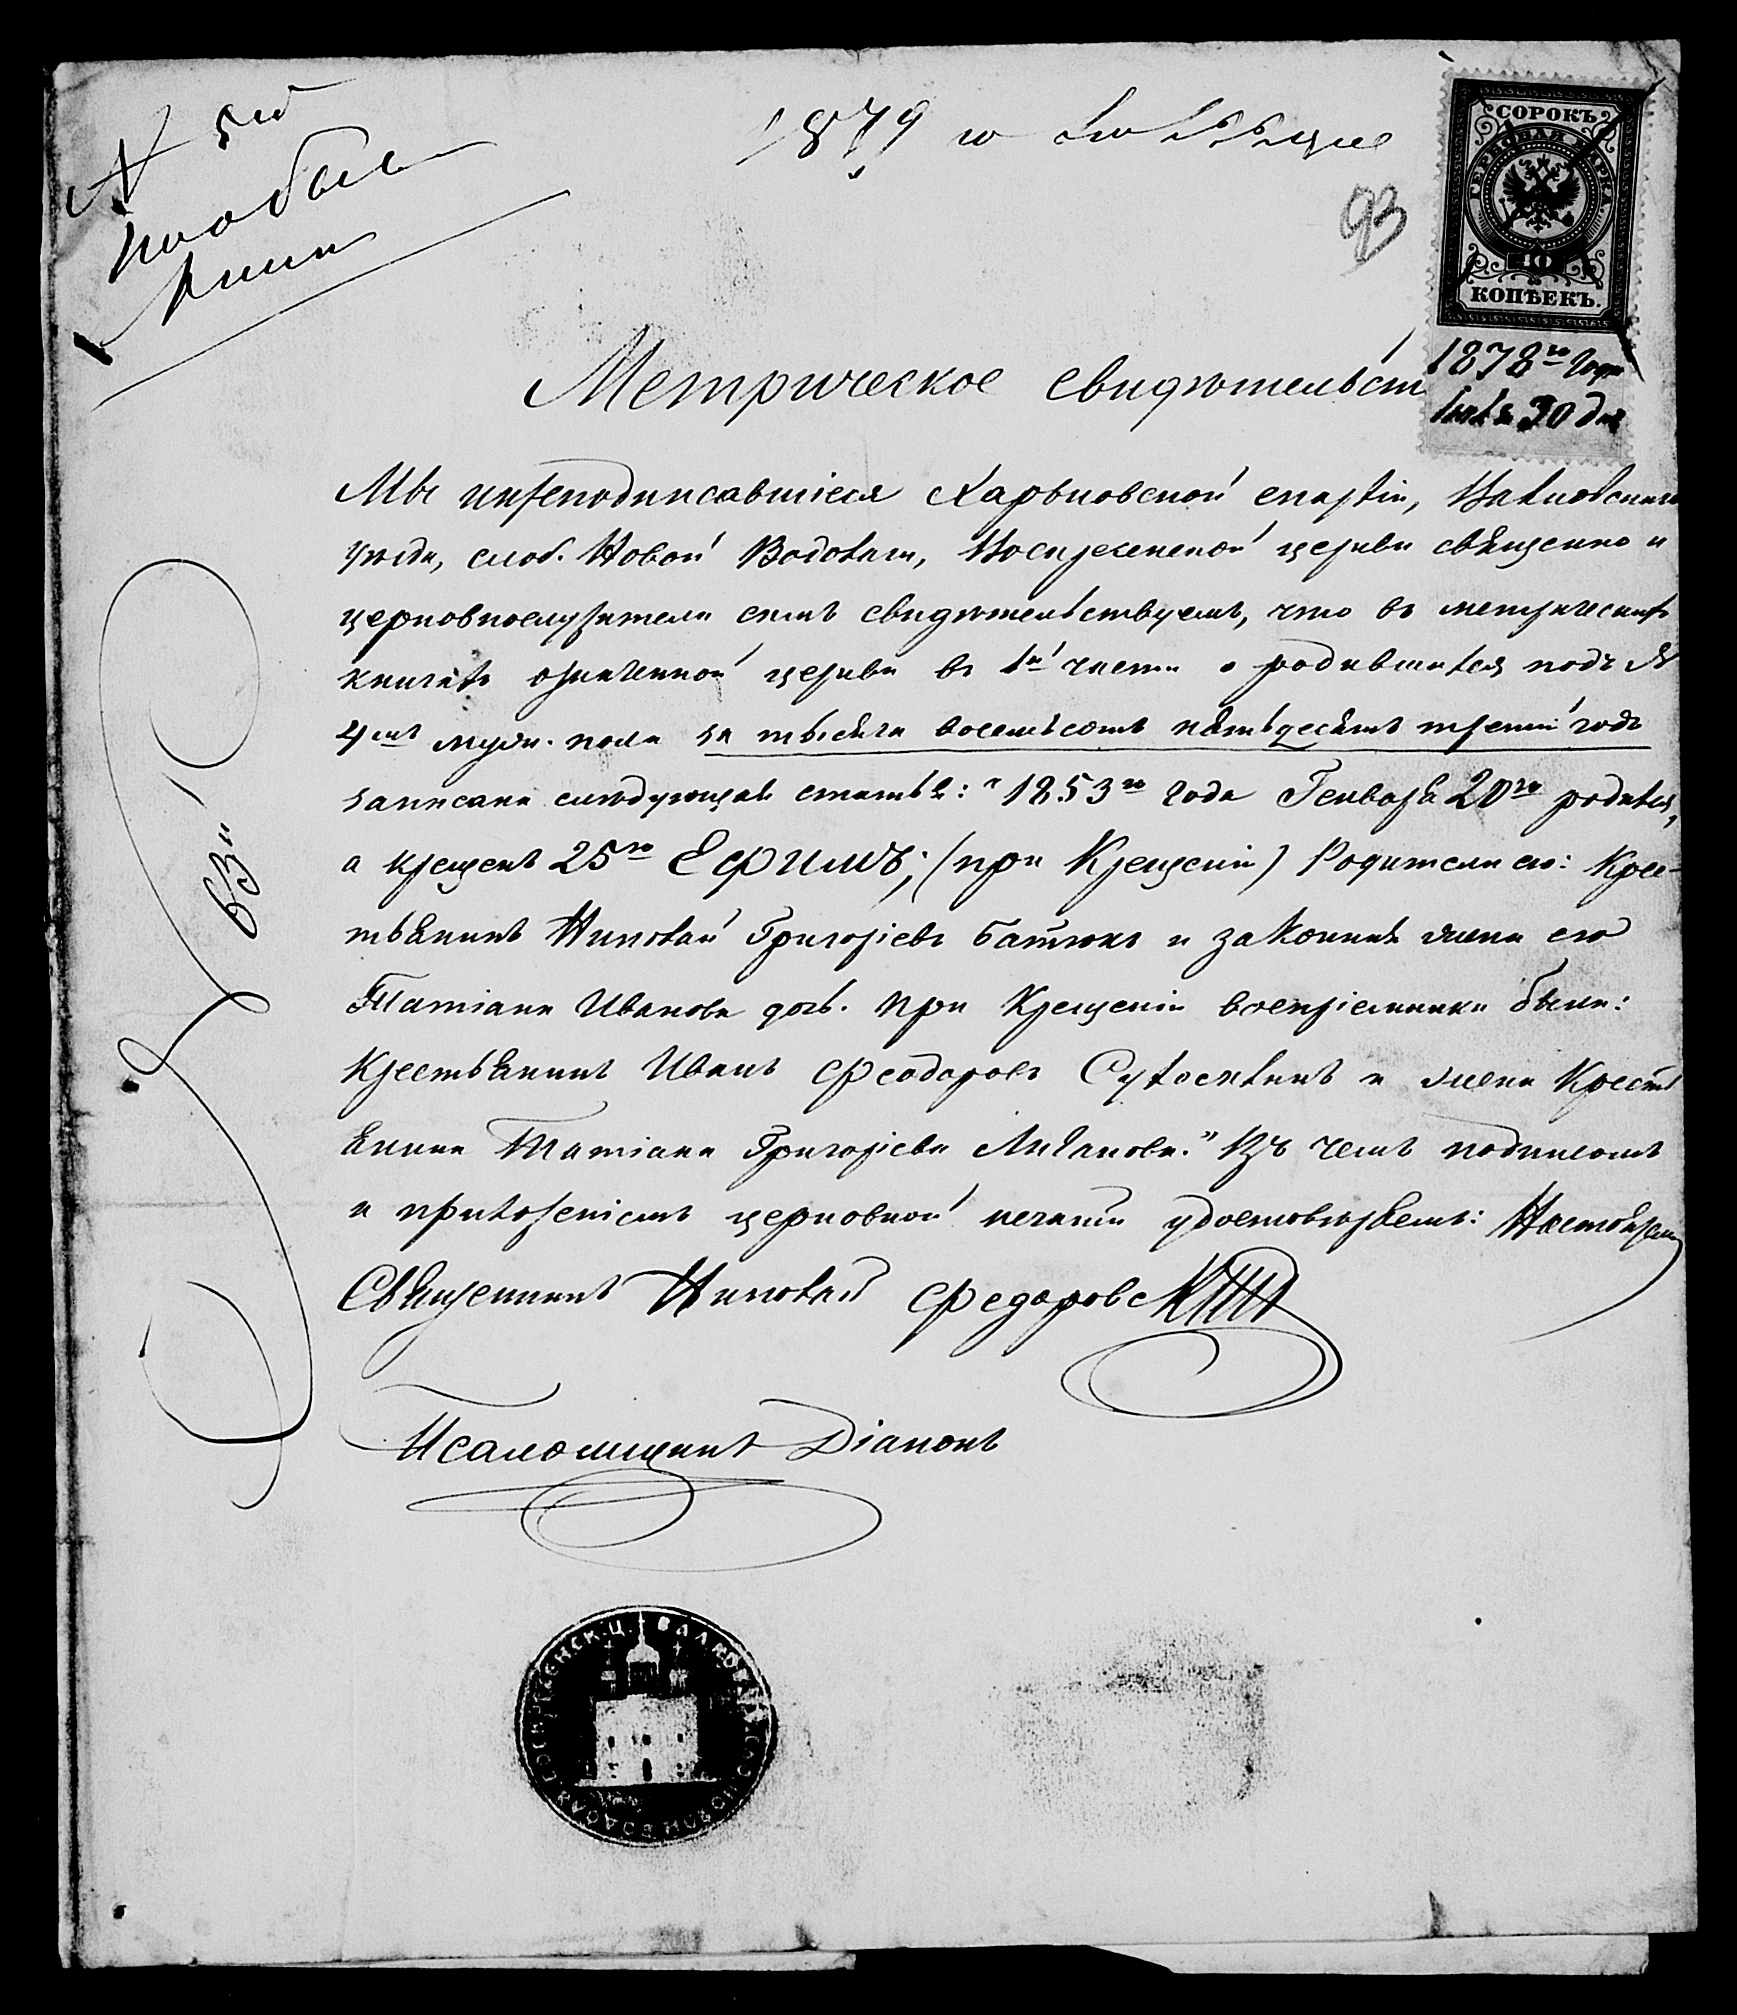 № 5й
1879 го
93
СОРОКЪ
ГЕРБОВАЯ МАРКА
40
КОПѢЕКЪ.
1878го года
Іюля 30 дня
Метрическое свидѣтельст
Мы нижеподписавшіеся Харьковской епархіи, Валковскаго
уѣзда, слоб. Новой Водолаги, Воскресенской церкви священно и
церковнослужители симъ свидѣтельствуемъ, что въ метрическихъ
книгахъ означенной церкви въ 1й части о родившихся подъ №
4мъ муж. пола за тысяча восемьсотъ пятьдесятъ третій годъ
записана слѣдующая статья: "1853го года Генваря 20го родился,
а крещенъ 25го Ефимъ; (при Крещеніи) Родители его: Крес-
тьянинъ Николай Григоріевъ Батюкъ и законная жена его
Татіана Иванова дочь. При Крещеніи воспріемники были:
Крестьянинъ Иванъ Феодоровъ и жена Крестъ
янина Татіана Григоріева." Въ чемъ подписомъ
и приложеніемъ церковной печати удостовѣряемъ: Настоятель
Священникъ Николай Федоровскій
Псаломщикъ Діаконъ
63
ВОСКРЕСЕНСК. Ц. ВАЛКОВ. СЛОБ. НОВОЙ ВОДОЛАГ